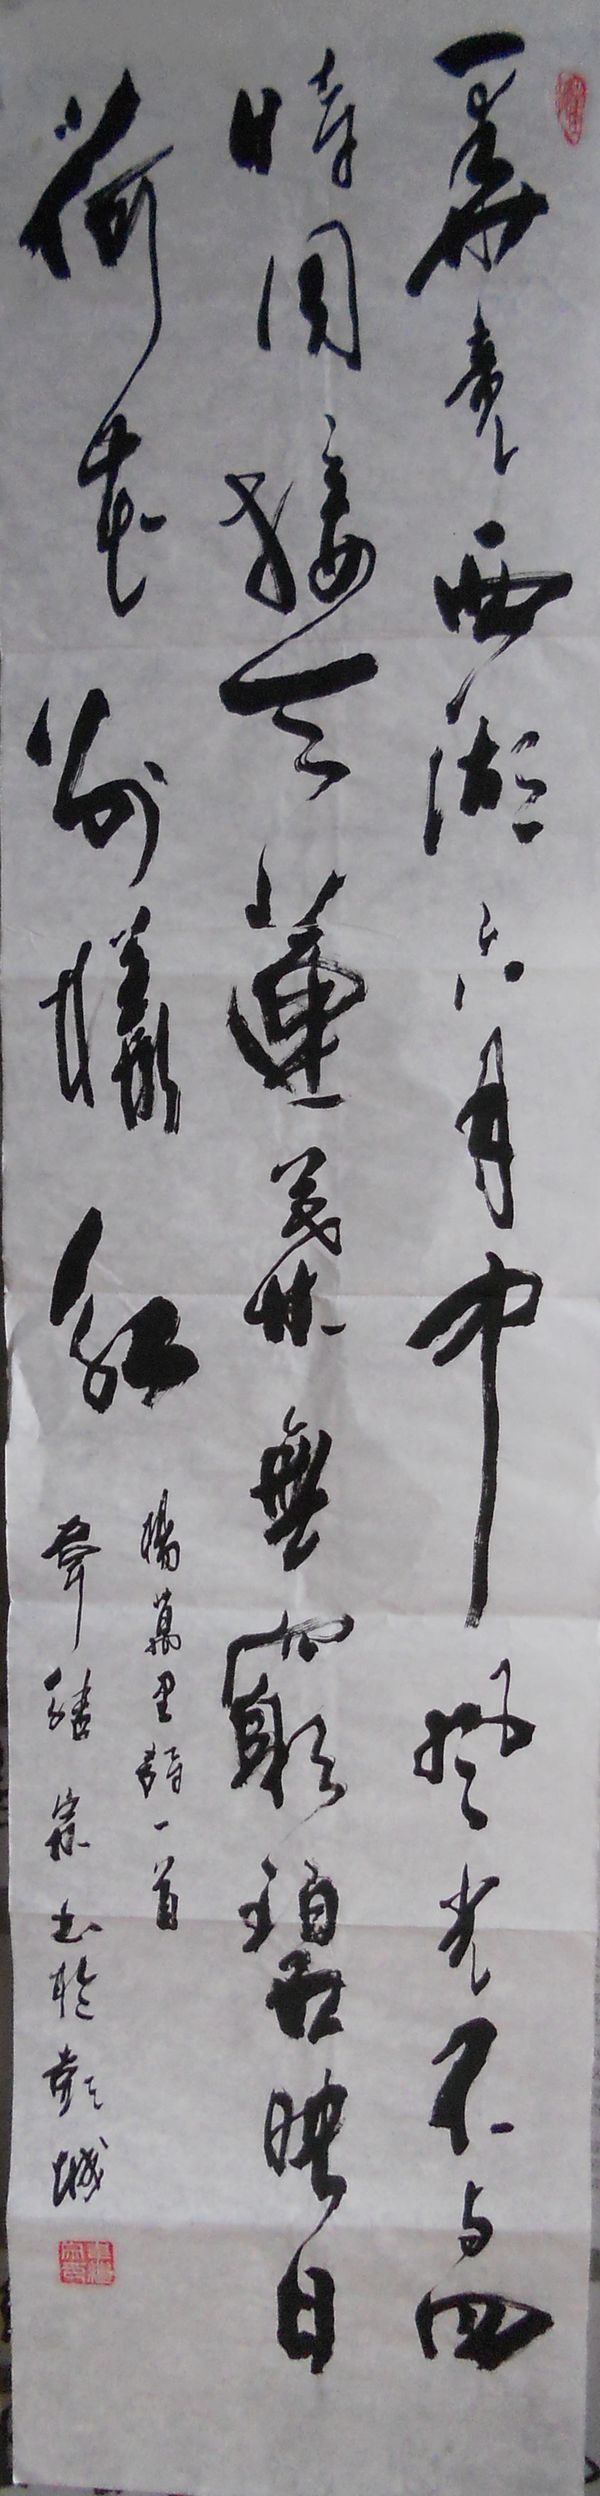 畢竟西湖六月中風光不与四
時同接天蓮葉無窮碧映日
荷花別樣紅
楊萬里詩一首
宗书於彭城